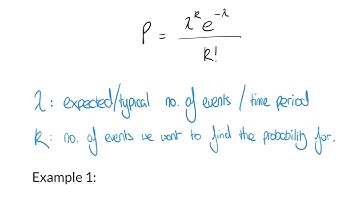 P = λ^k e^-λ / k!
λ: expected/typical no. of events / time period
k: no. of events we want to find the probability for.
Example 1: